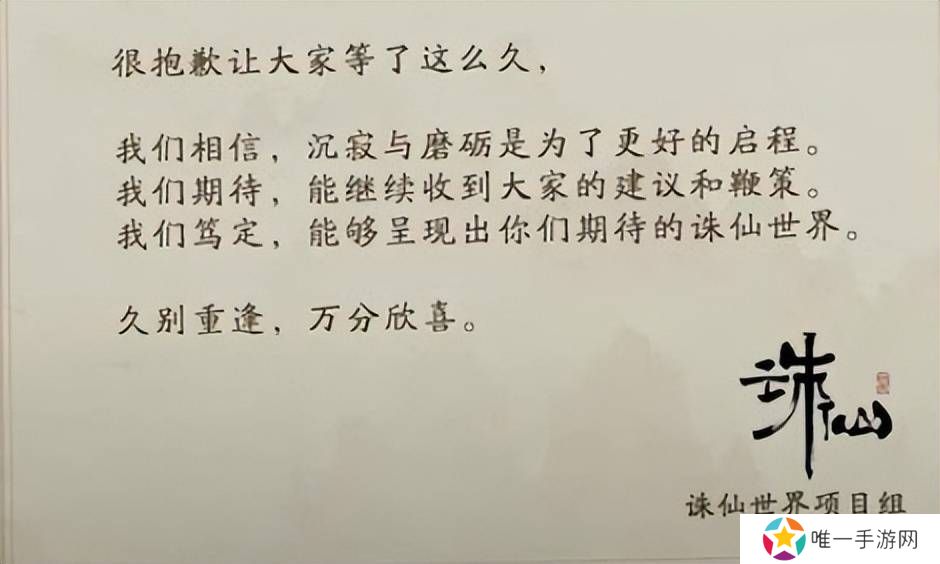 很抱歉让大家等了这么久，
我们相信，沉寂与磨砺是为了更好的启程。
我们期待，能继续收到大家的建议和鞭策。
我们笃定，能够呈现出你们期待的诛仙世界。
久别重逢，万分欣喜。
诛仙
诛仙世界项目组
唯一手游网